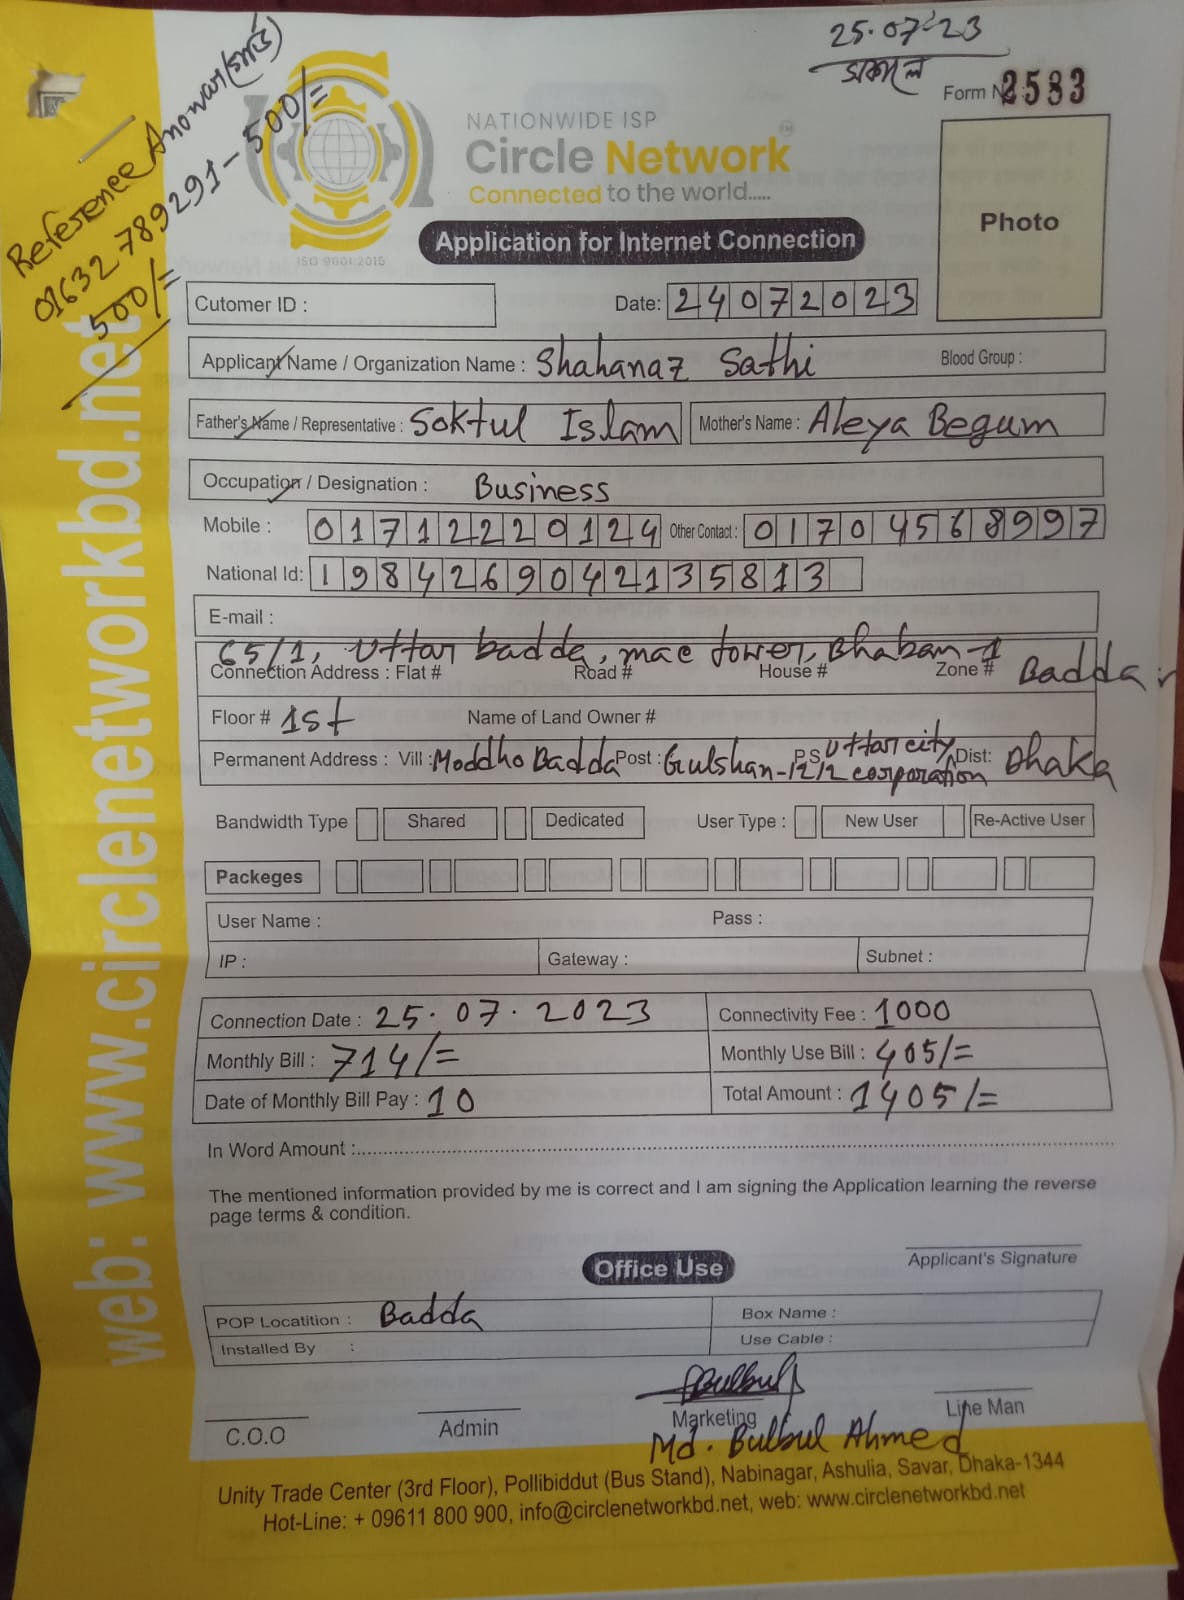 25.07.23
সকালে
Form No: 2583
Reference Anowar
01632789291-500/=
500/=
NATIONWIDE ISP
Circle Network
Connected to the world.....
ISO 9001:2015
Application for Internet Connection
Photo
Cutomer ID :
Date: 24072023
Applicant Name / Organization Name : Shahanaz Sathi Blood Group :
Father's Name / Representative : Soktul Islam Mother's Name : Aleya Begum
Occupation / Designation : Business
Mobile : 01712220124 Other Contact : 01704568997
National Id: 1984269042135813
E-mail :
65/1, Uttar badda, mac tower, Bhaban-1
Connection Address : Flat # Road # House # Zone # Badda
Floor # 1st Name of Land Owner #
Permanent Address : Vill : Moddho Badda Post : Gulshan-1212 P.S Uttar city corporation Dist: Dhaka
Bandwidth Type Shared Dedicated User Type : New User Re-Active User
Packeges
User Name : Pass :
IP : Gateway : Subnet :
Connection Date : 25.07.2023 Connectivity Fee : 1000
Monthly Bill : 714/= Monthly Use Bill : 405/=
Date of Monthly Bill Pay : 10 Total Amount : 1405/=
In Word Amount :
The mentioned information provided by me is correct and I am signing the Application learning the reverse
page terms & condition.
Applicant's Signature
Office Use
POP Locatition : Badda Box Name :
Installed By : Use Cable :
Bulbul
C.O.O Admin Marketing Line Man
Md. Bulbul Ahmed
Unity Trade Center (3rd Floor), Pollibiddut (Bus Stand), Nabinagar, Ashulia, Savar, Dhaka-1344
Hot-Line: + 09611 800 900, info@circlenetworkbd.net, web: www.circlenetworkbd.net
web: www.circlenetworkbd.net